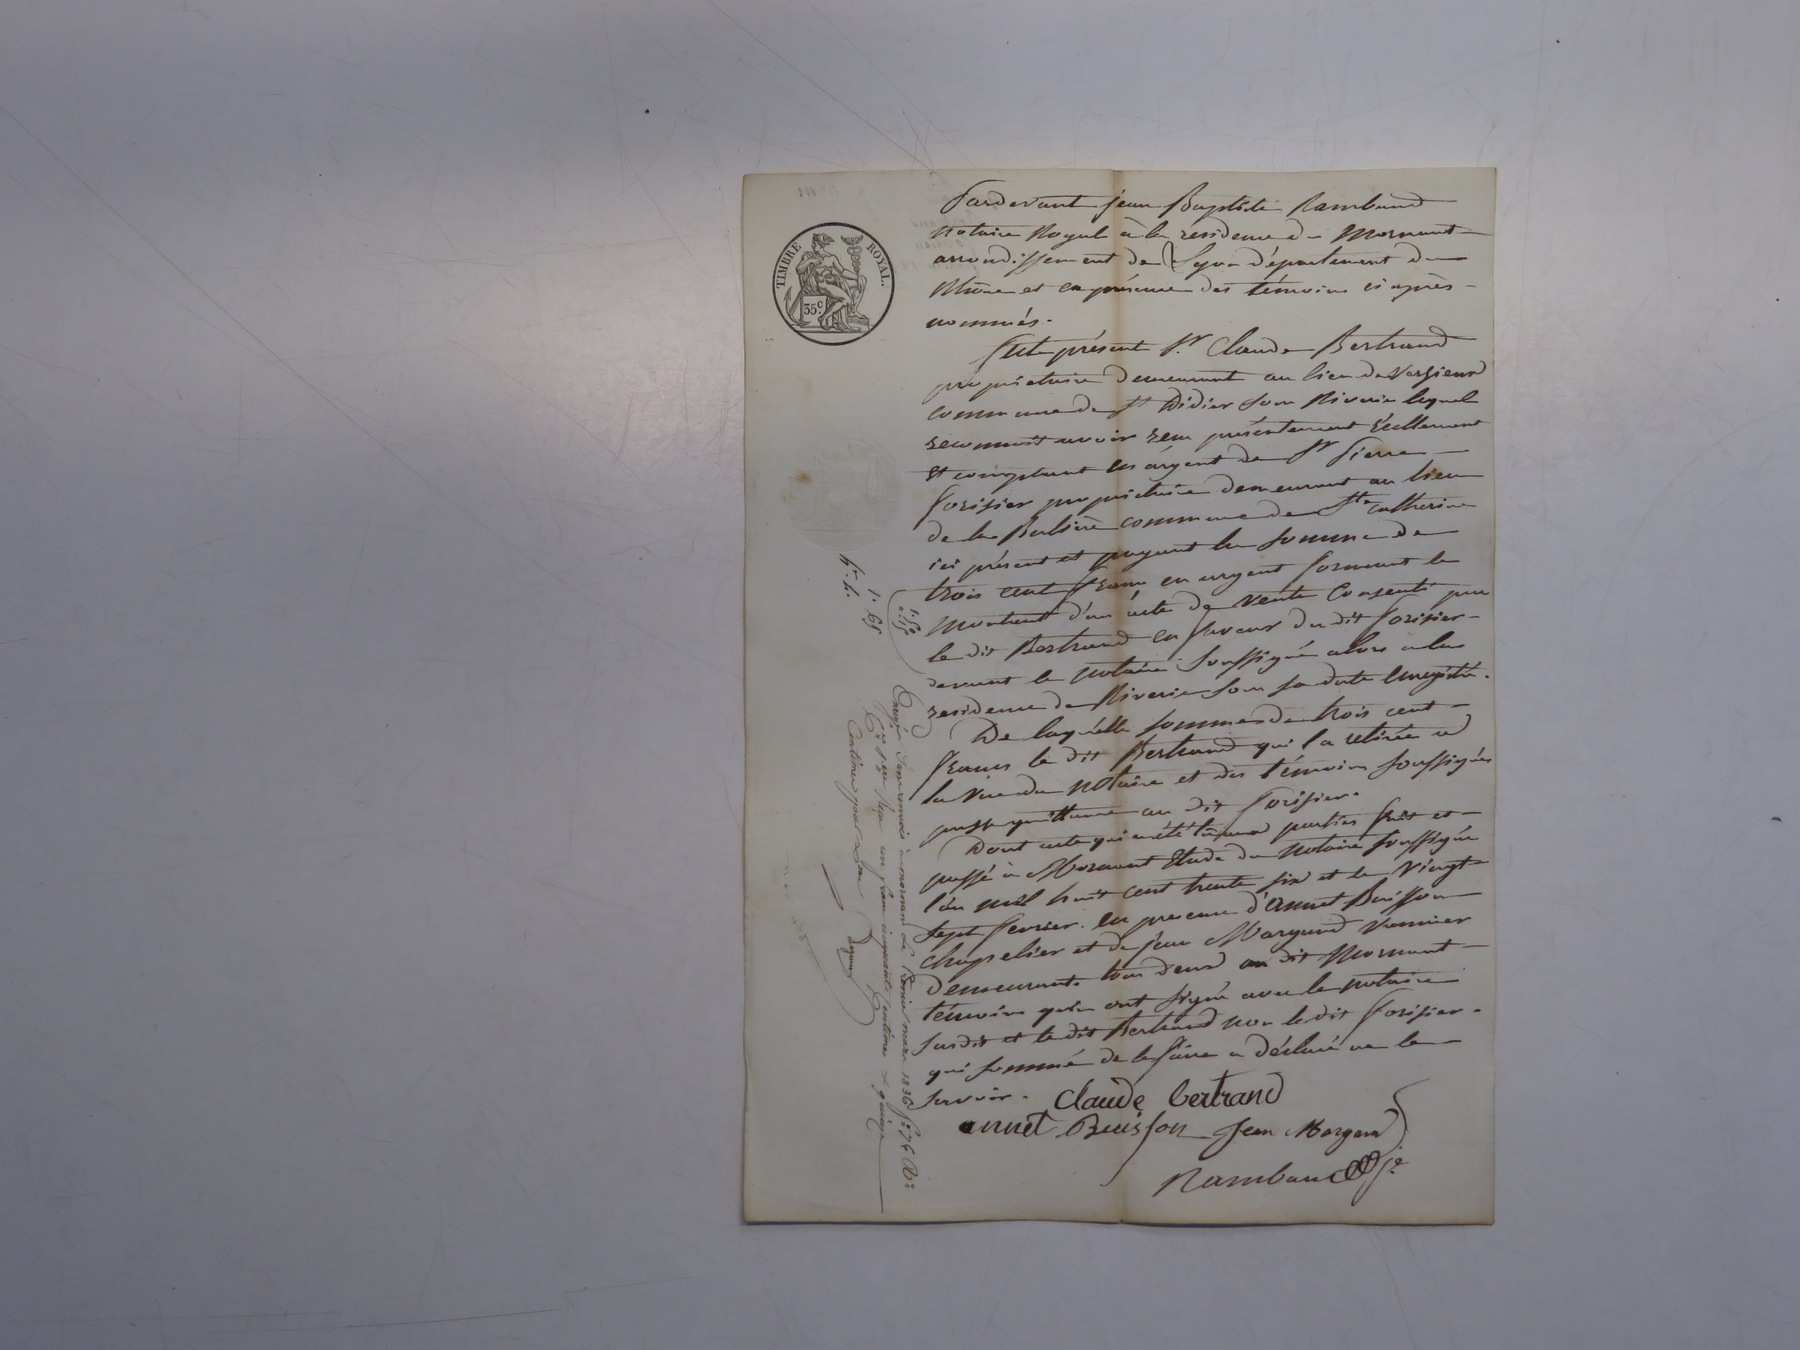 TIMBRE ROYAL.
35c.
Pardevant jean Baptiste Rambaud
notaire Royal à la residence de Mornant
arrondissement de Lyon département du
Rhône et en présence des témoins ci après
nommés.
Fut présent Sr. Claude Bertrand
propriétaire demeurant au lieu de Versieux
commune de St Didier sous Riverie lequel
reconnaît avoir reçu présentement réellement
et comptant en argent de Sr Pierre
forisier propriétaire demeurant au lieu
de la commune de Ste Catherine
ici présent et payant la somme de
trois cent francs en argent formant le
montant d'un acte de vente consenti par
le dit Bertrand en faveur du dit forisier
devant le notaire soussigné alors à la
residence de Riverie sous sa date enregistré.
De laquelle somme de trois cent
francs le dit Bertrand qui l'a retirée a
la vue du notaire et des témoins soussignés
passe quittance au dit forisier.
Dont acte qui a été lu aux parties fait et
passé à Mornant Etude du notaire soussigné
l'an mil huit cent trente six et le vingt
sept fevrier. en presence d'annet Buisson
chapelier et de jean Margand vannier
demeurants tous deux au dit Mornant
témoins qui ont signé avec le notaire
susdit et le dit Bertrand non le dit forisier.
qui sommé de le faire a déclaré ne le
savoir.
Claude bertrand
annet Buisson Jean Margand
Rambaud
1. 50
15
1. 65
Enregé sans renvoi à mornant le premier mars 1836 fo 76 Ro
reçu un franc cinquante centimes & quinze
centimes pour